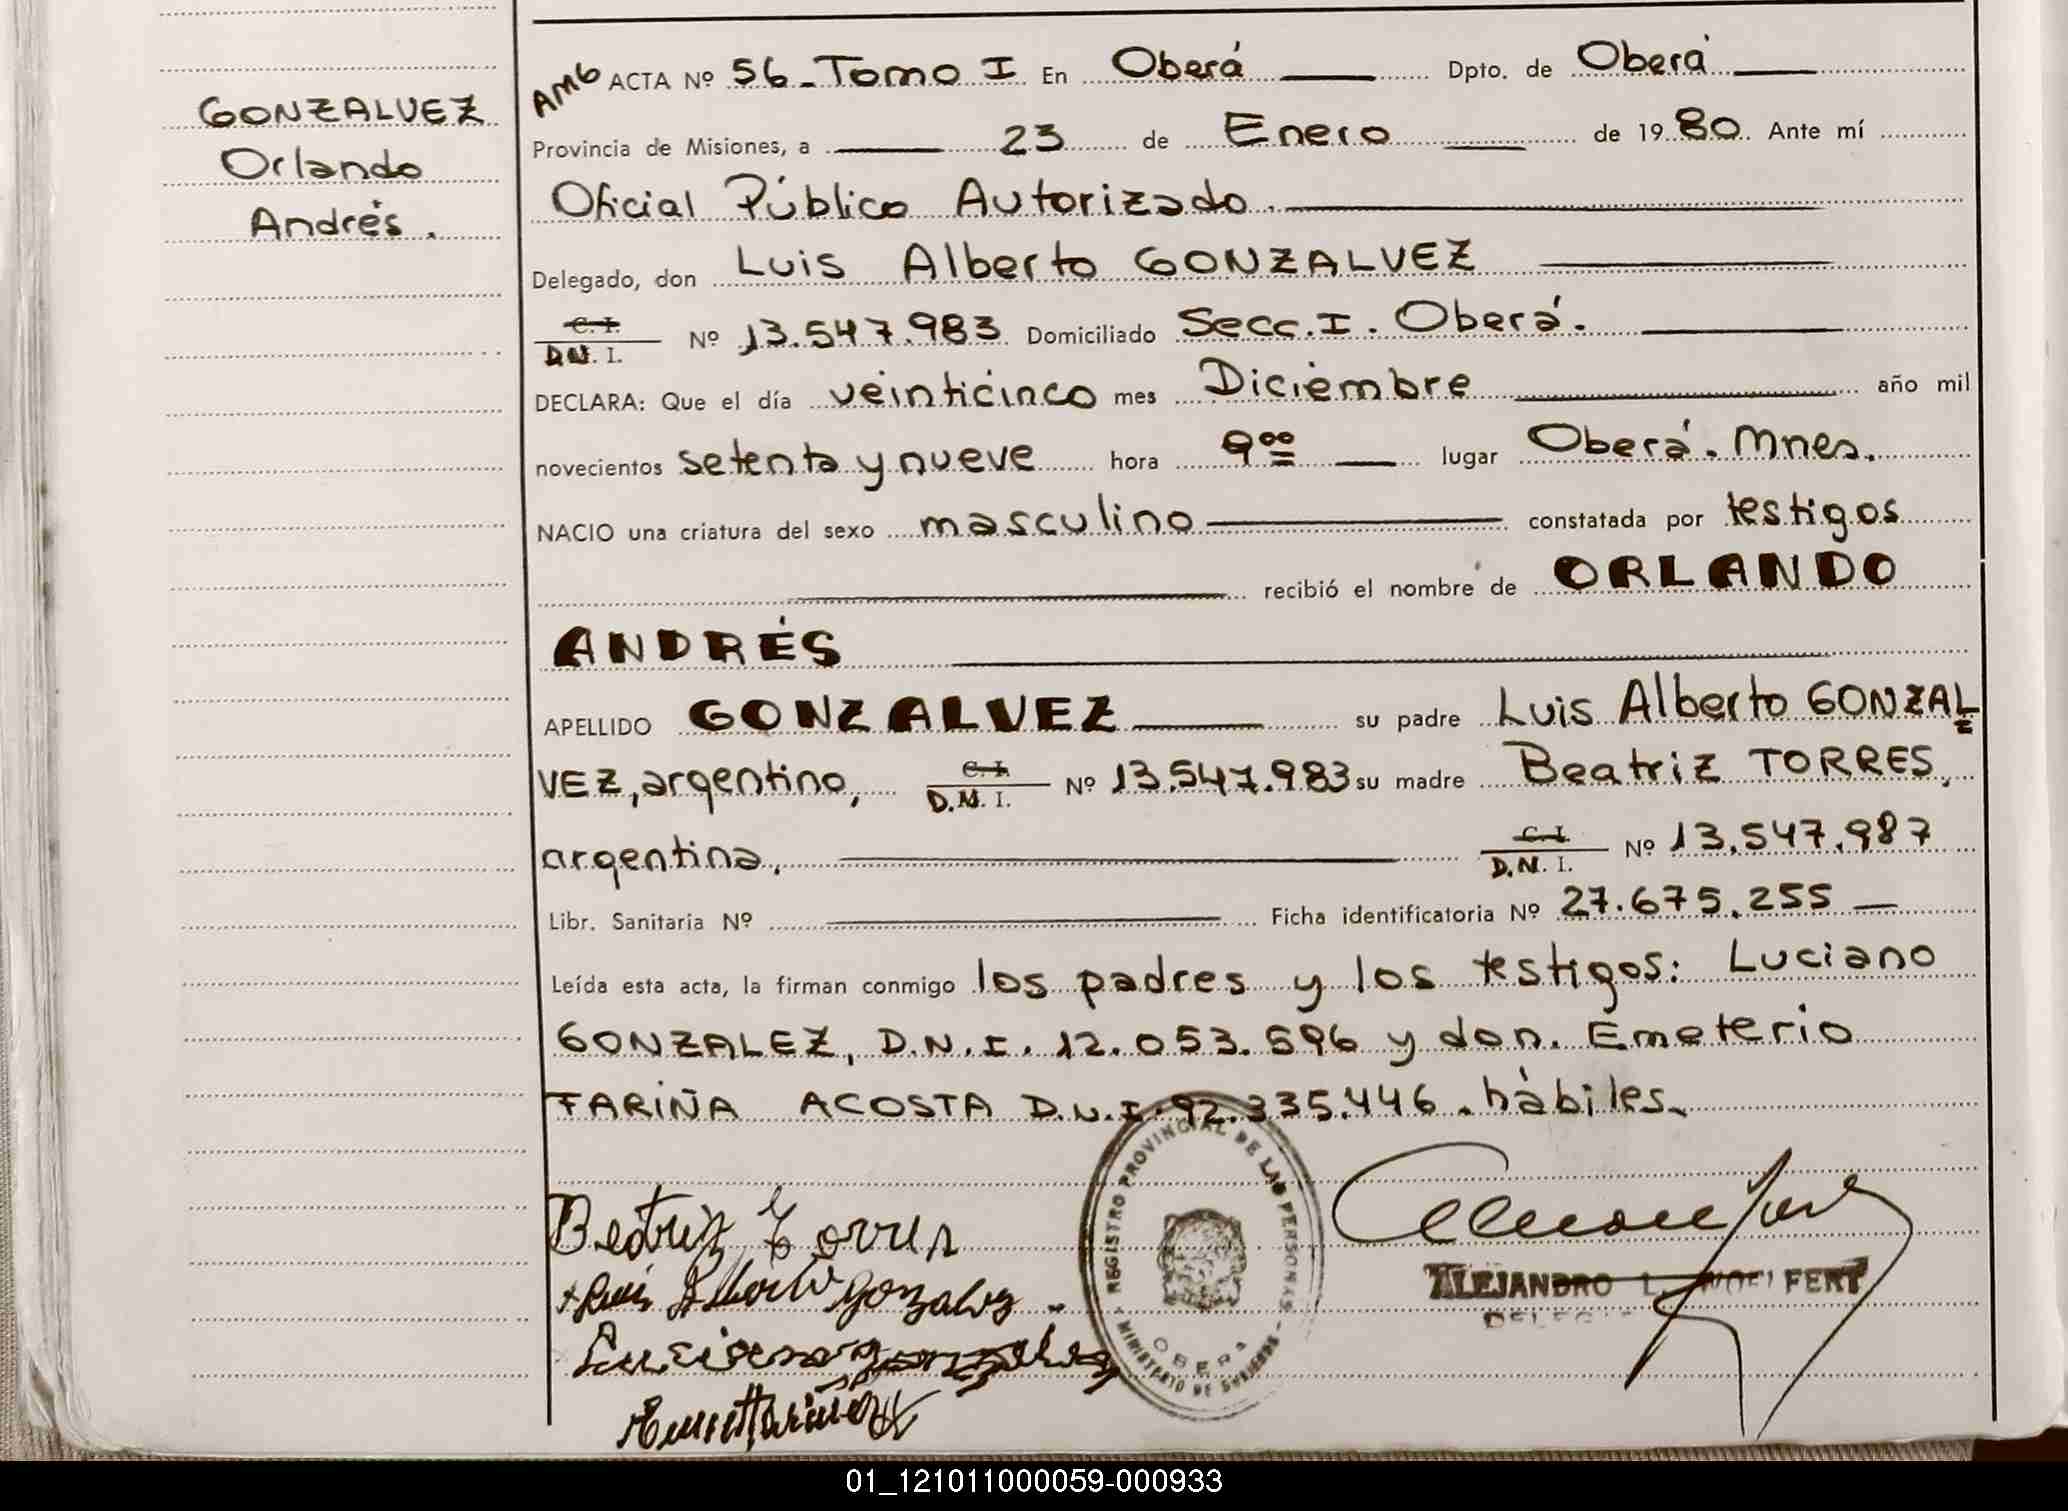 GONZALVEZ
Orlando
Andrés.
AMb ACTA Nº 56 - Tomo I En Oberá Dpto. de Oberá
Provincia de Misiones, a 23 de Enero de 1980 Ante mí
Oficial Público Autorizado.
Delegado, don Luis Alberto GONZALVEZ
C. I.
D.N. I. Nº 13.547.983 Domiciliado Secc. I. Oberá.
DECLARA: Que el día veinticinco mes Diciembre año mil
novecientos setenta y nueve hora 9 00 lugar Oberá. Mnes.
NACIO una criatura del sexo masculino constatada por testigos
recibió el nombre de ORLANDO
ANDRÉS
APELLIDO GONZALVEZ su padre Luis Alberto GONZAL
VEZ, argentino, C. I. D.N. I. Nº 13.547.983 su madre Beatriz TORRES,
argentina, C. I. D.N. I. Nº 13.547.987
Libr. Sanitaria Nº Ficha identificatoria Nº 27.675.255
Leída esta acta, la firman conmigo los padres y los testigos: Luciano
GONZALEZ, D.N.I. 12.053.596 y don. Emeterio
FARIÑA ACOSTA D.N.I. 92.335.446. hábiles.
Beatriz Torres
Luis Alberto Gonzalvez
Luciano Gonzalez
REGISTRO PROVINCIAL DE LAS PERSONAS
MINISTERIO DE
OBERA
ALEJANDRO L.
01_121011000059-000933